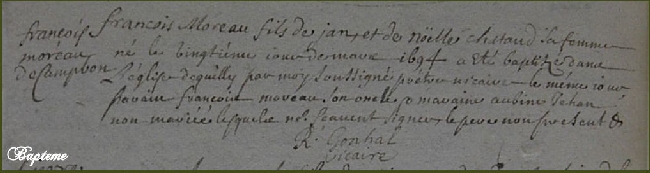 françois
moreau
de campbon
francois Moreau fils de jan, et de noëlle chstaud sa femme
né le vingtiéme jour de mars 1694 a eté baptizé dans
l'église de quilly par moy soussigné prêtre vicaire le même jour
parain francois moreau son oncle & maraine aubine Jehan
non mariée lesquels ne scauent signer le pere non present &
R. Gouhal
vicaire
Bapteme